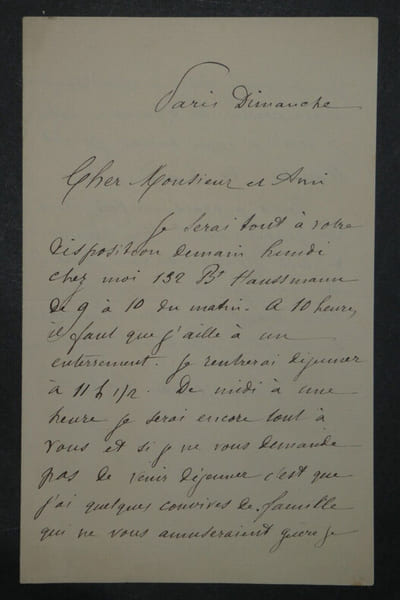 Paris Dimanche
Cher Monsieur et Ami
Je serai tout à votre
disposition demain lundi
chez moi 132 Bd Haussmann
de 9 à 10 du matin. A 10 heures,
il faut que j'aille à un
enterrement. Je rentrerai déjeuner
à 11 h 1/2. De midi à une
heure je serai encore tout à
vous et si je ne vous demande
pas de venir déjeuner c'est que
j'ai quelques convives de famille
qui ne vous amuseraient guère je